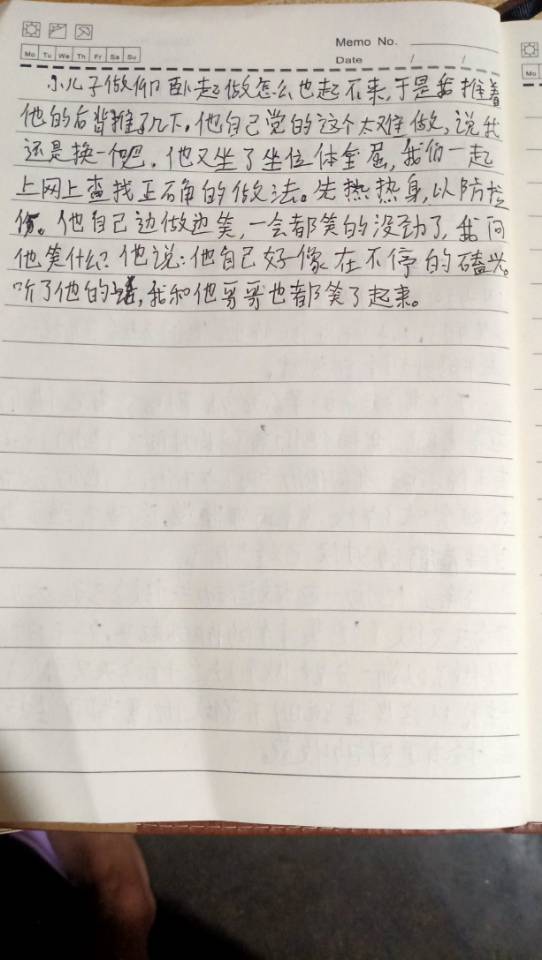 Memo No.
Mo Tu We Th Fr Sa Su
Date / /
小儿子做仰卧起做怎么也起不来,于是我推着
他的后背推了几下。他自己觉的这个太难做,说我
还是换一个吧。他又坐了坐位体前屈,我们一起
上网上查找正确的做法。先热热身,以防拉
伤。他自己边做边笑,一会都笑的没劲了,我问
他笑什么?他说:他自己好像在不停的磕头。
听了他的话,我和他哥哥也都笑了起来。
Mo